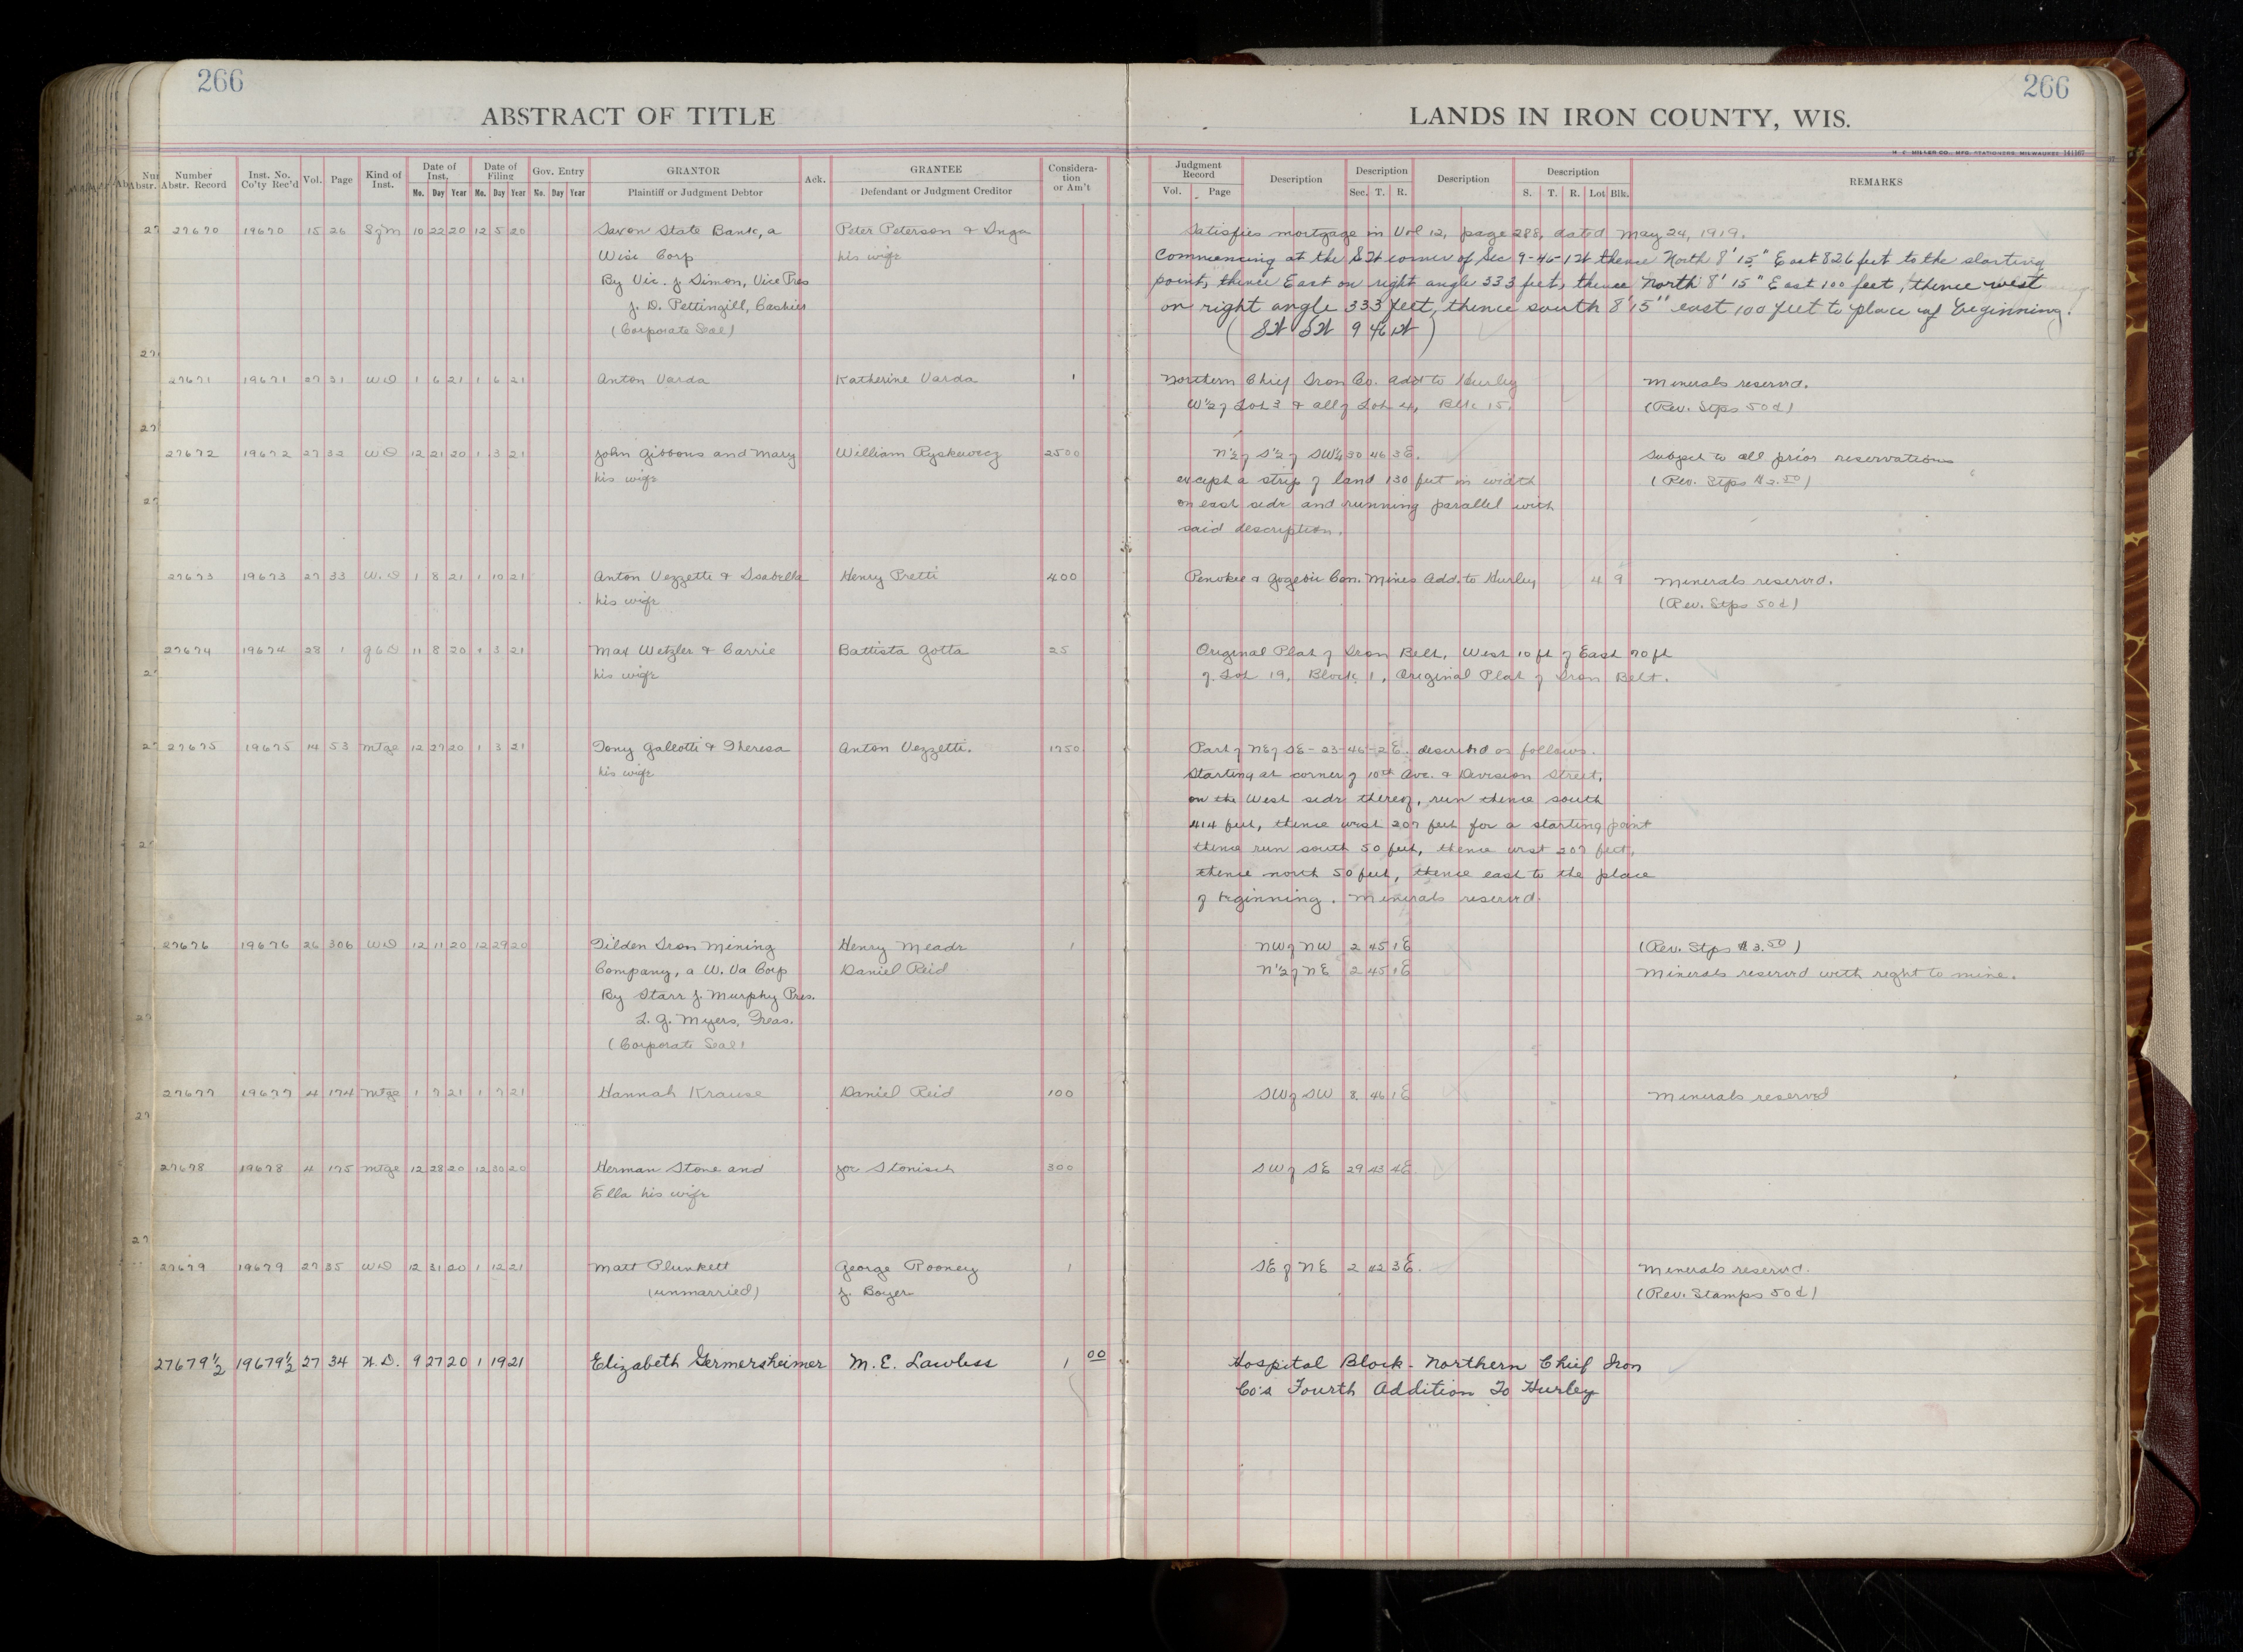 266
266
ABSTRACT OF TITLE
LANDS IN IRON COUNTY, WIS.
M. C. MILLER CO., MFG. STATIONERS, MILWAUKEE 141167
Number Abstr. Record | Inst. No. Co'ty Rec'd | Vol. | Page | Kind of Inst. | Date of Inst. Mo. Day Year | Date of Filing Mo. Day Year | Gov. Entry No. Day Year | GRANTOR Plaintiff or Judgment Debtor | Ack. | GRANTEE Defendant or Judgment Creditor | Considera- tion or Am't | Judgment Record Vol. Page | Description | Description Sec. T. R. | Description | Description S. T. R. Lot Blk. | REMARKS
27670 19670 15 26 S of M 10 22 20 12 5 20 Saxon State Bank, a Peter Peterson & Inga Satisfies mortgage in Vol 12, page 288, dated May 24, 1919.
Wisc Corp his wife Commencing at the SW corner of Sec 9-46-1W thence North 8' 15" East 826 feet to the starting
By Vic. J. Simon, Vice Pres point, thence East on right angle 333 feet, thence North 8' 15" East 100 feet, thence west
J. D. Pettingill, Cashier on right angle 333 feet, thence south 8' 15" east 100 feet to place of beginning.
(Corporate Seal) (SW SW 9 46 1W)
27671 19671 27 31 WD 1 6 21 1 6 21 Anton Varda Katherine Varda 1 Northern Chief Iron Co. add to Hurley Minerals reserved.
W½ of Lot 3 & all of Lot 4, Blk 15. (Rev. Stps 50¢)
27672 19672 27 32 WD 12 21 20 1 3 21 John Gibbons and Mary William Ryskewecz 2500 N½ of S½ of SW¼ 30 46 3E. Subject to all prior reservations
his wife except a strip of land 130 feet in width (Rev. Stps $2.50)
on east side and running parallel with
said description.
27673 19673 27 33 W.D 1 8 21 1 10 21 Anton Vezzetti & Isabella Henry Pretti 400 Penokee & Gogebic Con. Mines Add. to Hurley 4 9 Minerals reserved.
his wife (Rev. Stps 50¢)
27674 19674 28 1 QCD 11 8 20 1 3 21 Max Wetzler & Carrie Battista Gotta 25 Original Plat of Iron Belt, West 10 ft of East 70 ft
his wife of Lot 19, Block 1, Original Plat of Iron Belt.
27675 19675 14 53 Mtge 12 27 20 1 3 21 Tony Galeotti & Theresa Anton Vezzetti. 1750 Part of NE of SE - 23-46-2E. described as follows.
his wife Starting at corner of 10th Ave. & Division Street,
on the West side thereof, run thence south
414 feet, thence west 207 feet for a starting point
thence run south 50 feet, thence west 207 feet,
thence north 50 feet, thence east to the place
of beginning. Minerals reserved.
27676 19676 26 306 WD 12 11 20 12 29 20 Tilden Iron Mining Henry Meade 1 NW of NW 2 45 1E (Rev. Stps $3.50)
Company, a W. Va Corp Daniel Reid N½ of NE 2 45 1E Minerals reserved with right to mine.
By Starr J. Murphy Pres.
L. G. Myers, Treas.
(Corporate Seal)
27677 19677 4 174 Mtge 1 7 21 1 7 21 Hannah Krause Daniel Reid 100 SW of SW 8 46 1E Minerals reserved
27678 19678 4 175 Mtge 12 28 20 12 30 20 Herman Stone and Joe Stonisch 300 SW of SE 29 43 4E.
Ella his wife
27679 19679 27 35 WD 12 31 20 1 12 21 Matt Plunkett George Rooney 1 SE of NE 2 42 3E. Minerals reserved.
(unmarried) J. Boyer (Rev. Stamps 50¢)
27679½ 19679½ 27 34 W.D. 9 27 20 1 19 21 Elizabeth Germersheimer M. E. Lawless 1 00 Hospital Block - Northern Chief Iron
Co's Fourth Addition To Hurley